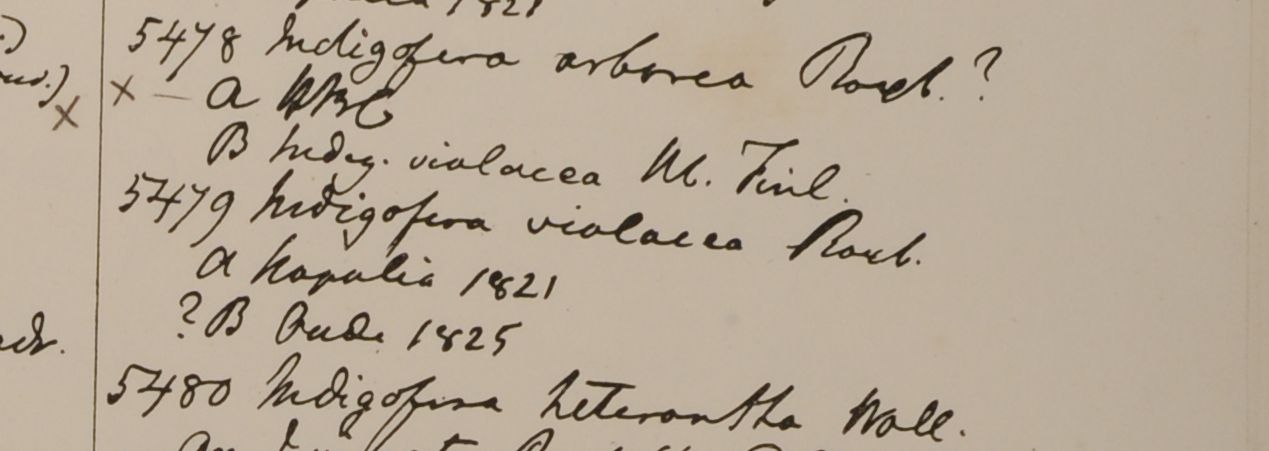 1821
5478 Indigofera arborea Roxb. ?
× — A HBC
B Indig. violacea M. Finl.
5479 Indigofera violacea Roxb.
A Napalia 1821
? B Oude 1825
5480 Indigofera heterantha Wall.